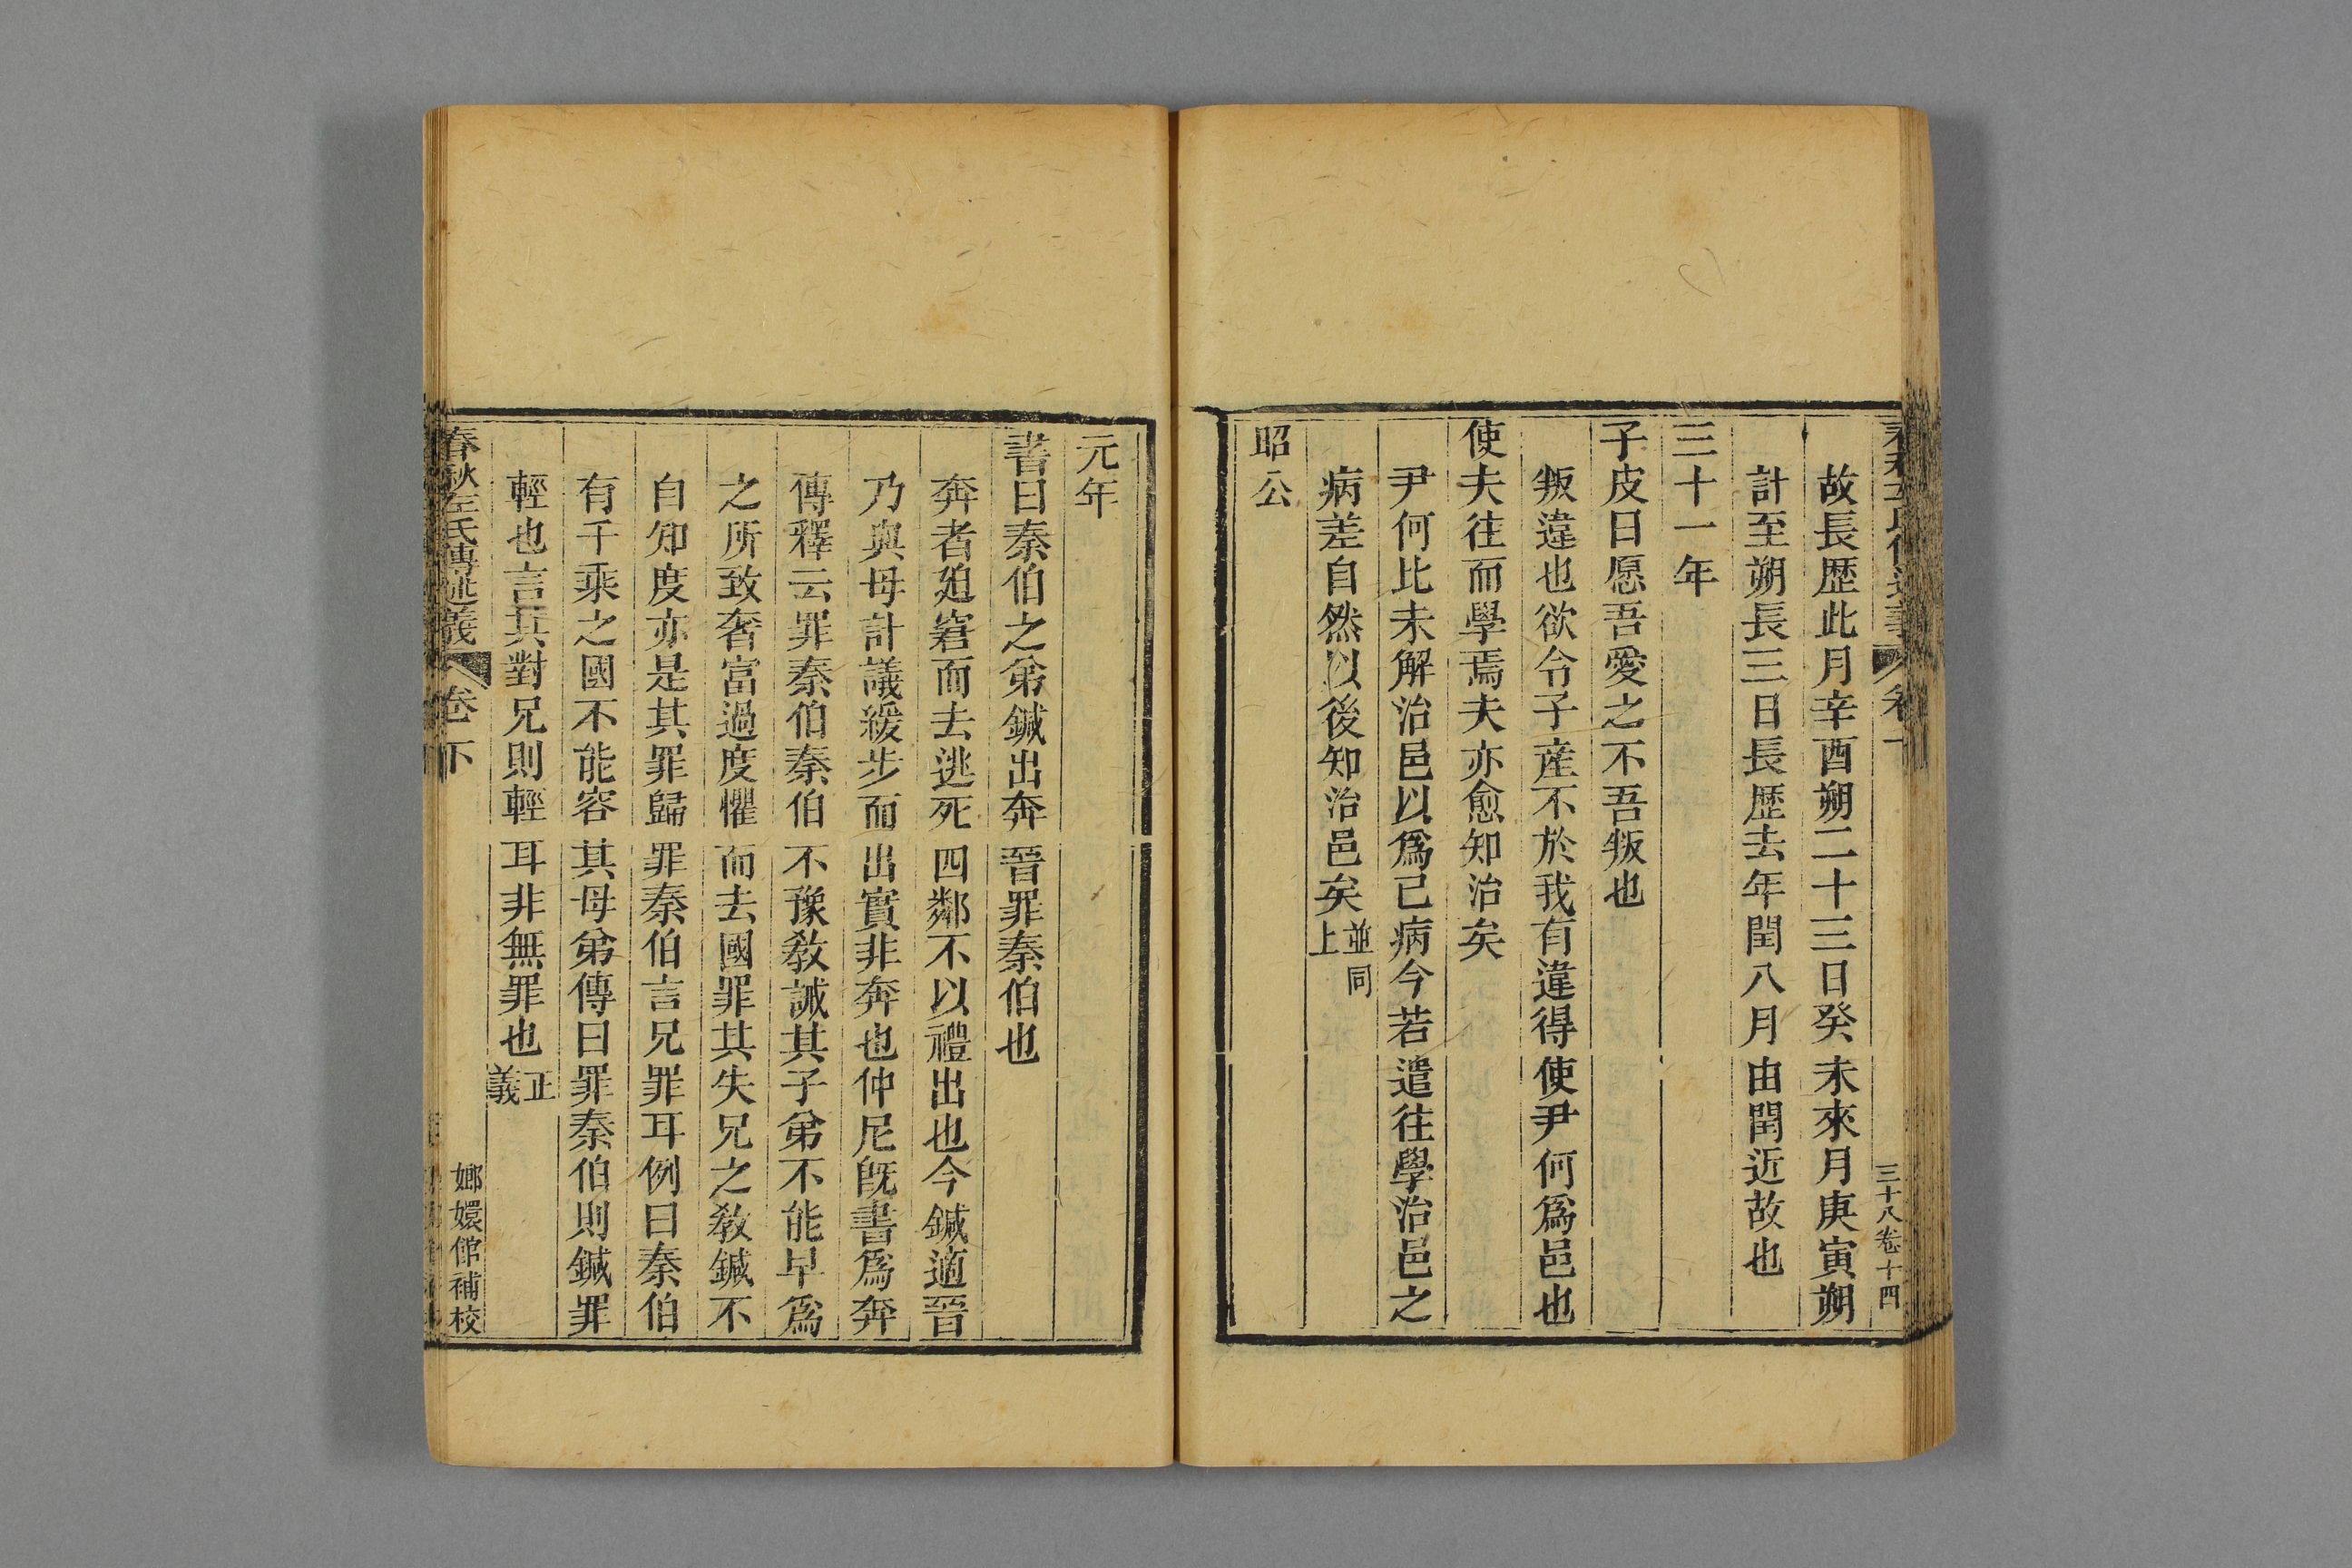 三十八卷十四
故長歷此月辛酉朔二十三日癸未來月庚寅朔
計至朔長三日長歷去年閏八月由閏近故也
三十一年
子皮曰愿吾愛之不吾叛也
叛違也欲令子產不於我有違得使尹何爲邑也
使夫往而學焉夫亦愈知治矣
尹何比未解治邑以爲己病今若遣往學治邑之
病差自然以後知治邑矣並同上
昭公
元年
書曰秦伯之弟鍼出奔晉罪秦伯也
奔者廹窘而去逃死四鄰不以禮出也今鍼適晉
乃與母計議緩步而出實非奔也仲尼旣書爲奔
傳釋云罪秦伯秦伯不豫敎誡其子弟不能早爲
之所致奢富過度懼而去國罪其失兄之敎鍼不
自知度亦是其罪歸罪秦伯言兄罪耳例曰秦伯
有千乘之國不能容其母弟傳曰罪秦伯則鍼罪
輕也言其對兄則輕耳非無罪也正義
春秋左氏傳述義 卷下 嫏嬛館補校